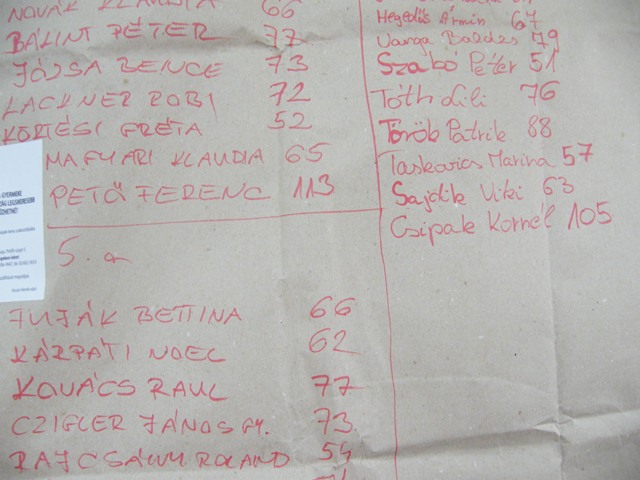 NOVÁK KLAUDIA 66
BÁLINT PÉTER 77
JÓZSA BENCE 73
LACKNER ROBI 72
KÖRTÉSI GRÉTA 52
MAGYARI KLAUDIA 65
PETŐ FERENC 113
5. a
JUJÁK BETTINA 66
KÁRPÁTI NOEL 62
KOVÁCS RAUL 77
CZIGLER JÁNOS GY. 73
RAJCSÁNYI ROLAND 54
Hegedűs Ármin 67
Varga Balázs 79
Szabó Péter 51
Tóth Lili 76
Török Patrik 88
Taskovics Marina 57
Sajdik Viki 63
Csipak Kornél 105